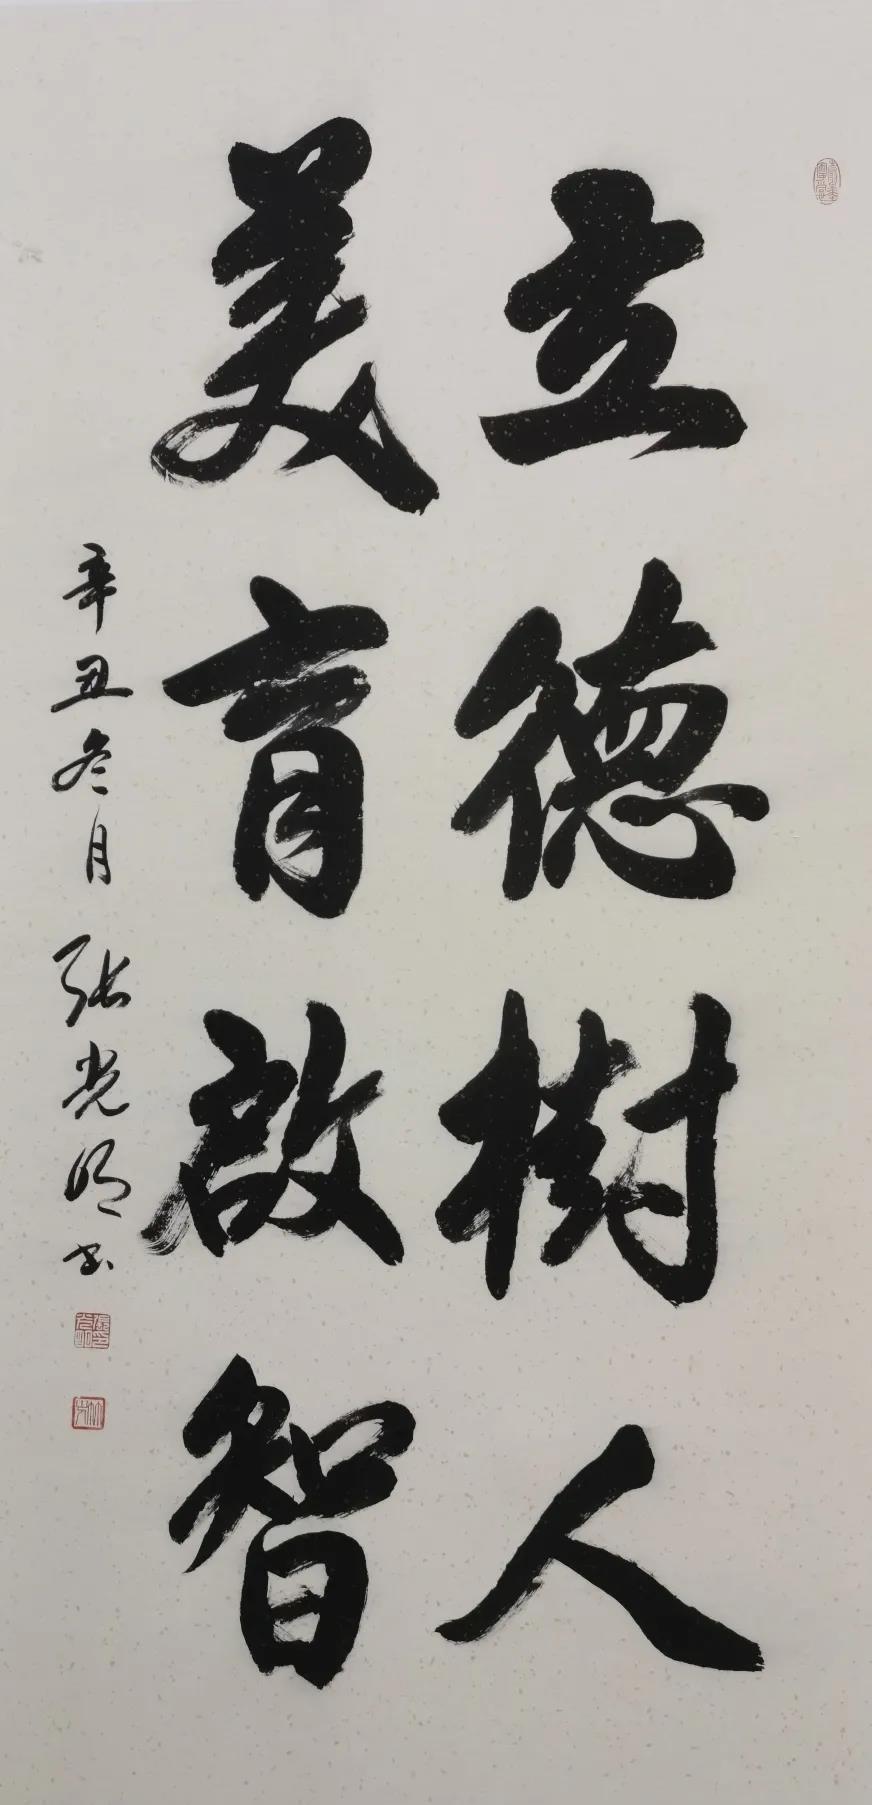 立德樹人
美育啟智
辛丑冬月 張光明书